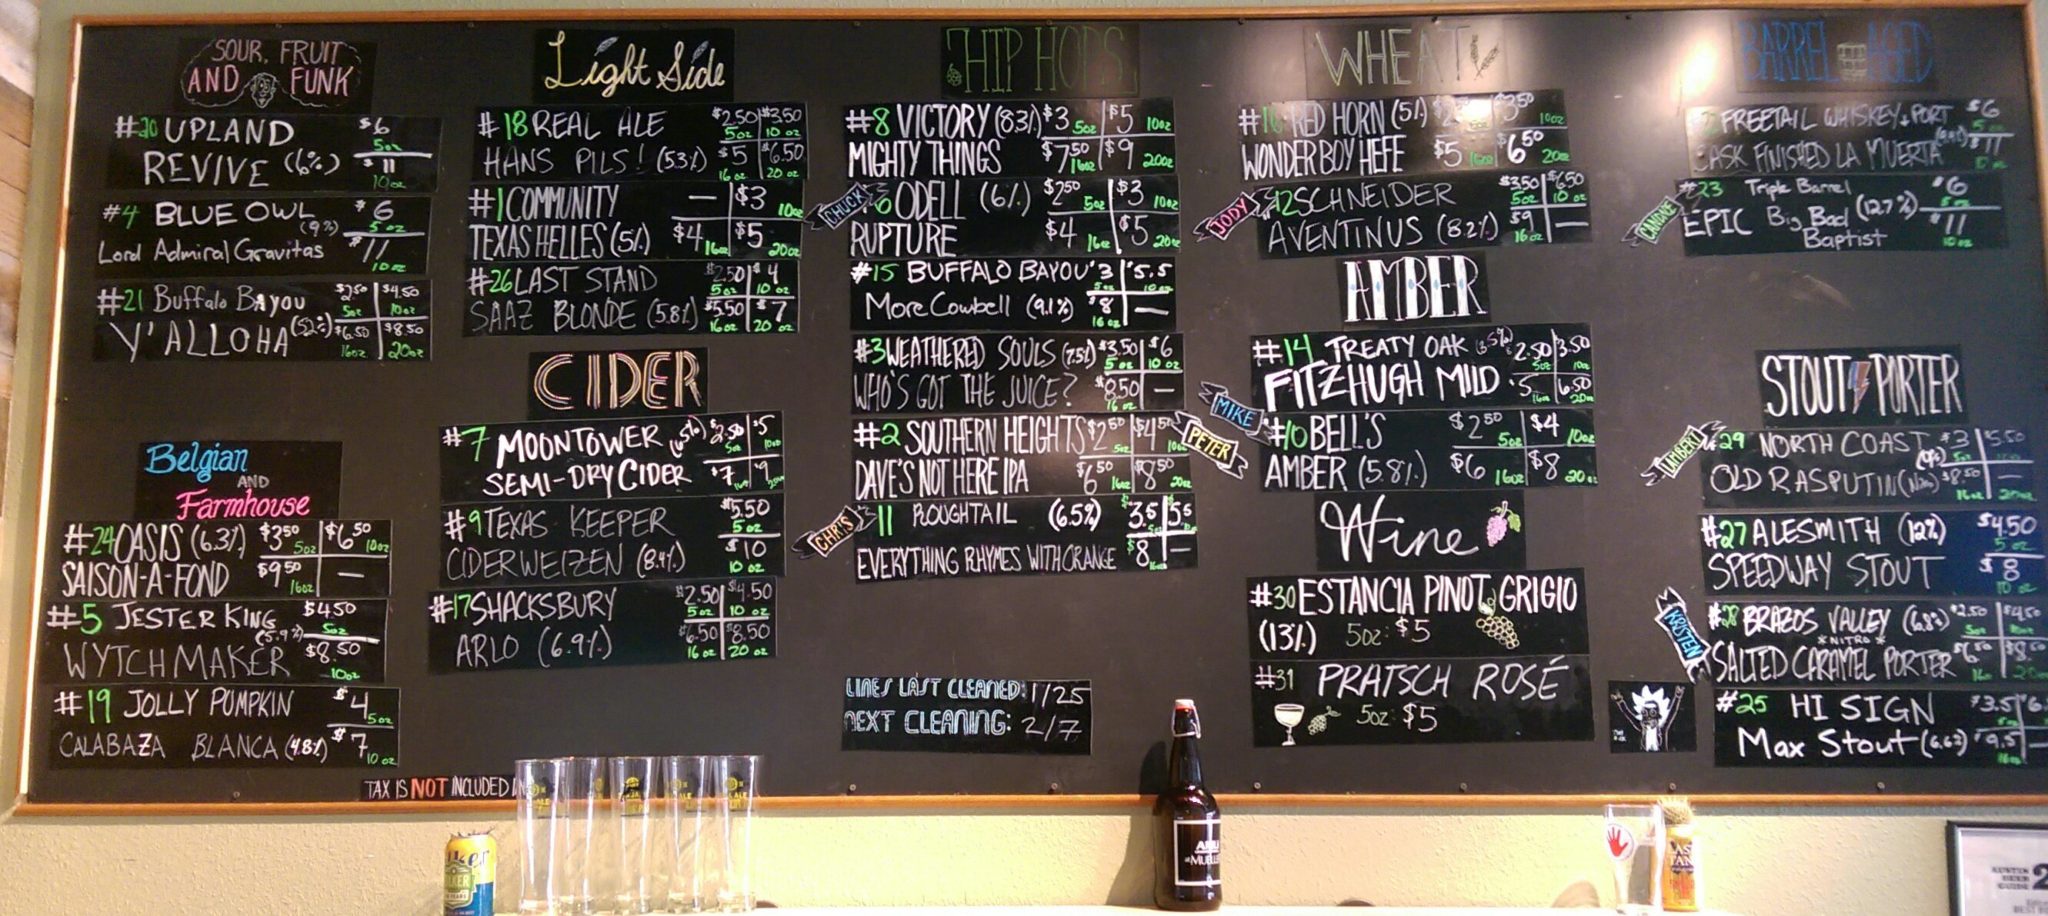 SOUR, FRUIT
AND FUNK
#20 UPLAND $6 5oz
REVIVE (6%) $11 10oz
#4 BLUE OWL (9%) $6 5oz
Lord Admiral Gravitas $11 10oz
#21 Buffalo Bayou $2.50 5oz $4.50 10oz
Y'ALLOHA (5.2%) $6.50 16oz $8.50 20oz
Belgian
AND
Farmhouse
#24 OASIS (6.3%) $3.50 5oz $6.50 10oz
SAISON-A-FOND $9.50 16oz —
#5 JESTER KING (5.9%) $4.50 5oz
WYTCHMAKER $8.50 10oz
#19 JOLLY PUMPKIN $4 5oz
CALABAZA BLANCA (4.8%) $7 10oz
TAX IS NOT INCLUDED
Light Side
#18 REAL ALE $2.50 5oz $3.50 10oz
HANS PILS! (5.3%) $5 16oz $6.50 20oz
#1 COMMUNITY — $3 10oz
TEXAS HELLES (5%) $4 16oz $5 20oz
#26 LAST STAND $2.50 5oz $4 10oz
SAAZ BLONDE (5.8%) $5.50 16oz $7 20oz
CIDER
#7 MOONTOWER (6.5%) $2.50 5oz $5 10oz
SEMI-DRY CIDER $7 16oz $9 20oz
#9 TEXAS KEEPER $5.50 5oz
CIDERWEIZEN (8.4%) $10 10oz
#17 SHACKSBURY $2.50 5oz $4.50 10oz
ARLO (6.9%) $6.50 16oz $8.50 20oz
HIP HOPS
#8 VICTORY (8.3%) $3 5oz $5 10oz
MIGHTY THINGS $7.50 16oz $9 20oz
CHUCK
6 ODELL (6%) $2.50 5oz $3 10oz
RUPTURE $4 16oz $5 20oz
#15 BUFFALO BAYOU $3 5oz $5.5 10oz
More Cowbell (9.1%) $8 16oz —
#3 WEATHERED SOULS (7.5%) $3.50 5oz $6 10oz
WHO'S GOT THE JUICE? $8.50 16oz —
#2 SOUTHERN HEIGHTS $2.50 5oz $4.50 10oz
DAVE'S NOT HERE IPA $6.50 16oz $8.50 20oz
CHRIS
11 ROUGHTAIL (6.5%) $3.5 5oz $5.5
EVERYTHING RHYMES WITH ORANGE $8 16oz —
LINES LAST CLEANED: 1/25
NEXT CLEANING: 2/7
WHEAT
#16 RED HORN (5%) $3.50 10oz
WONDERBOY HEFE $5 16oz $6.50 20oz
JODY
12 SCHNEIDER $3.50 5oz $6.50 10oz
AVENTINUS (8.2%) $9 16oz —
AMBER
#14 TREATY OAK 2.50 5oz 3.50 10oz
FITZHUGH MILD 5 16oz 6.50 20oz
MIKE
PETER
#10 BELL'S $2.50 5oz $4 10oz
AMBER (5.8%) $6 16oz $8 20oz
Wine
#30 ESTANCIA PINOT GRIGIO
(13%) 5oz: $5
#31 PRATSCH ROSÉ
5oz: $5
BARREL AGED
FREETAIL WHISKEY + PORT $6
CASK FINISHED LA MUERTA $11 10oz
CANDACE
#23 Triple Barrel $6 5oz
EPIC Big Bad (12.7%) $11 10oz
Baptist
STOUT PORTER
LAMBERT
#29 NORTH COAST (9%) $3 $5.50
OLD RASPUTIN (Nitro) $8.50 16oz — 20oz
#27 ALESMITH (12%) $4.50 5oz
SPEEDWAY STOUT $8 10oz
KRISTEN
#28 BRAZOS VALLEY (6.8%) $2.50 5oz $4.50
*NITRO*
SALTED CARAMEL PORTER $6.50 16oz $8.50
#25 HI SIGN $3.5
Max Stout (6.6%) $9.5 —